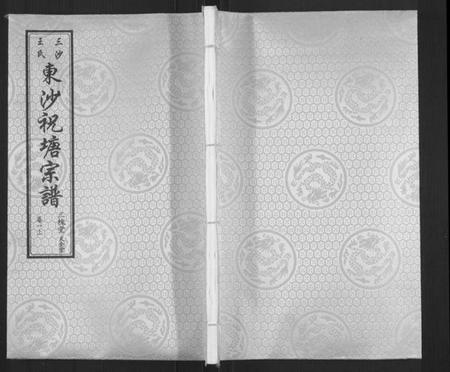 三沙
王氏
東沙祝塘宗譜
三槐堂
卷一上